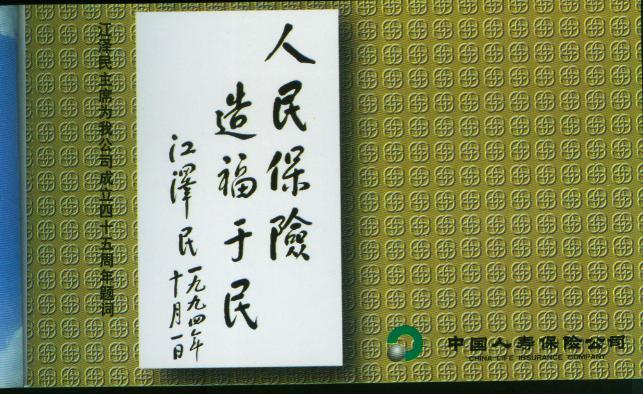 江泽民主席为我公司成立四十五周年题词
人民保險
造福于民
江澤民
一九九四年
十月一日
中国人寿保险公司
CHINA LIFE INSURANCE COMPANY